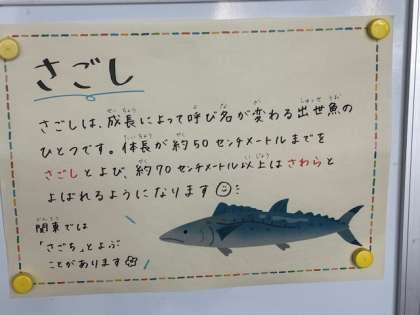 さごし
さごしは、成長によって呼び名が変わる出世魚の
ひとつです。体長が約50センチメートルまでを
さごしとよび、約70センチメートル以上はさわらと
よばれるようになります
関東では
「さごち」とよぶ
ことがあります